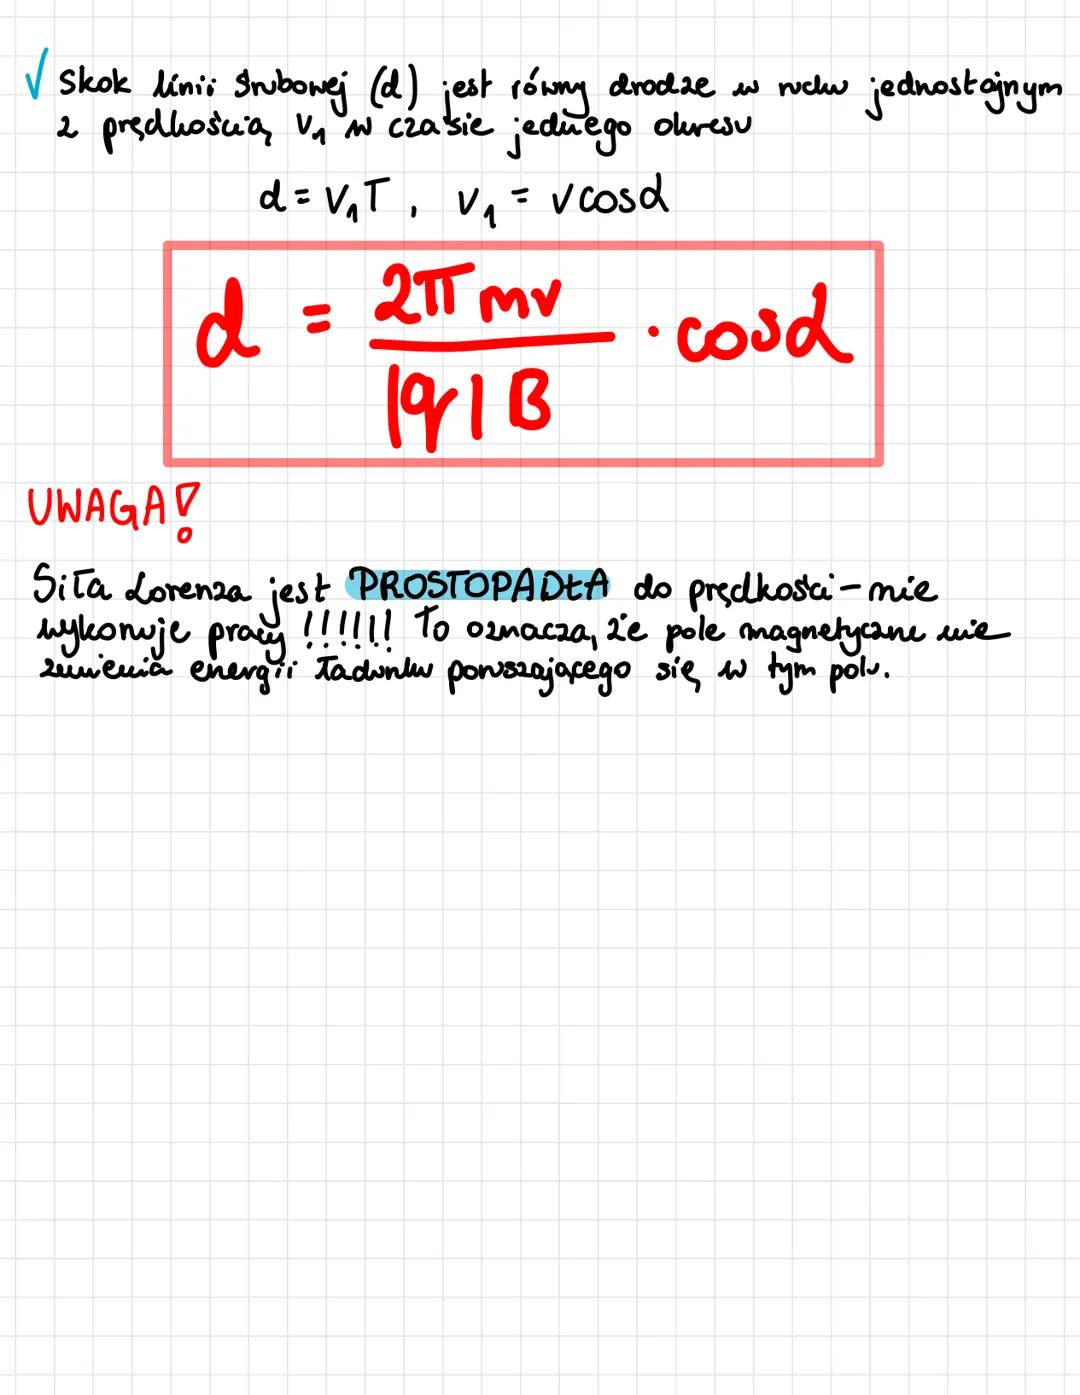 √ Skok linii śrubowej (d) jest równy drodze w ruchu jednostajnym
z prędkością v₁ w czasie jednego okresu
d = v₁T, v₁ = v cosα
d = 2πmv / |q|B · cosα
UWAGA!
Siła Lorenza jest PROSTOPADŁA do prędkości - nie
wykonuje pracy !!!!!! To oznacza, że pole magnetyczne nie
zmienia energii ładunku poruszającego się w tym polu.